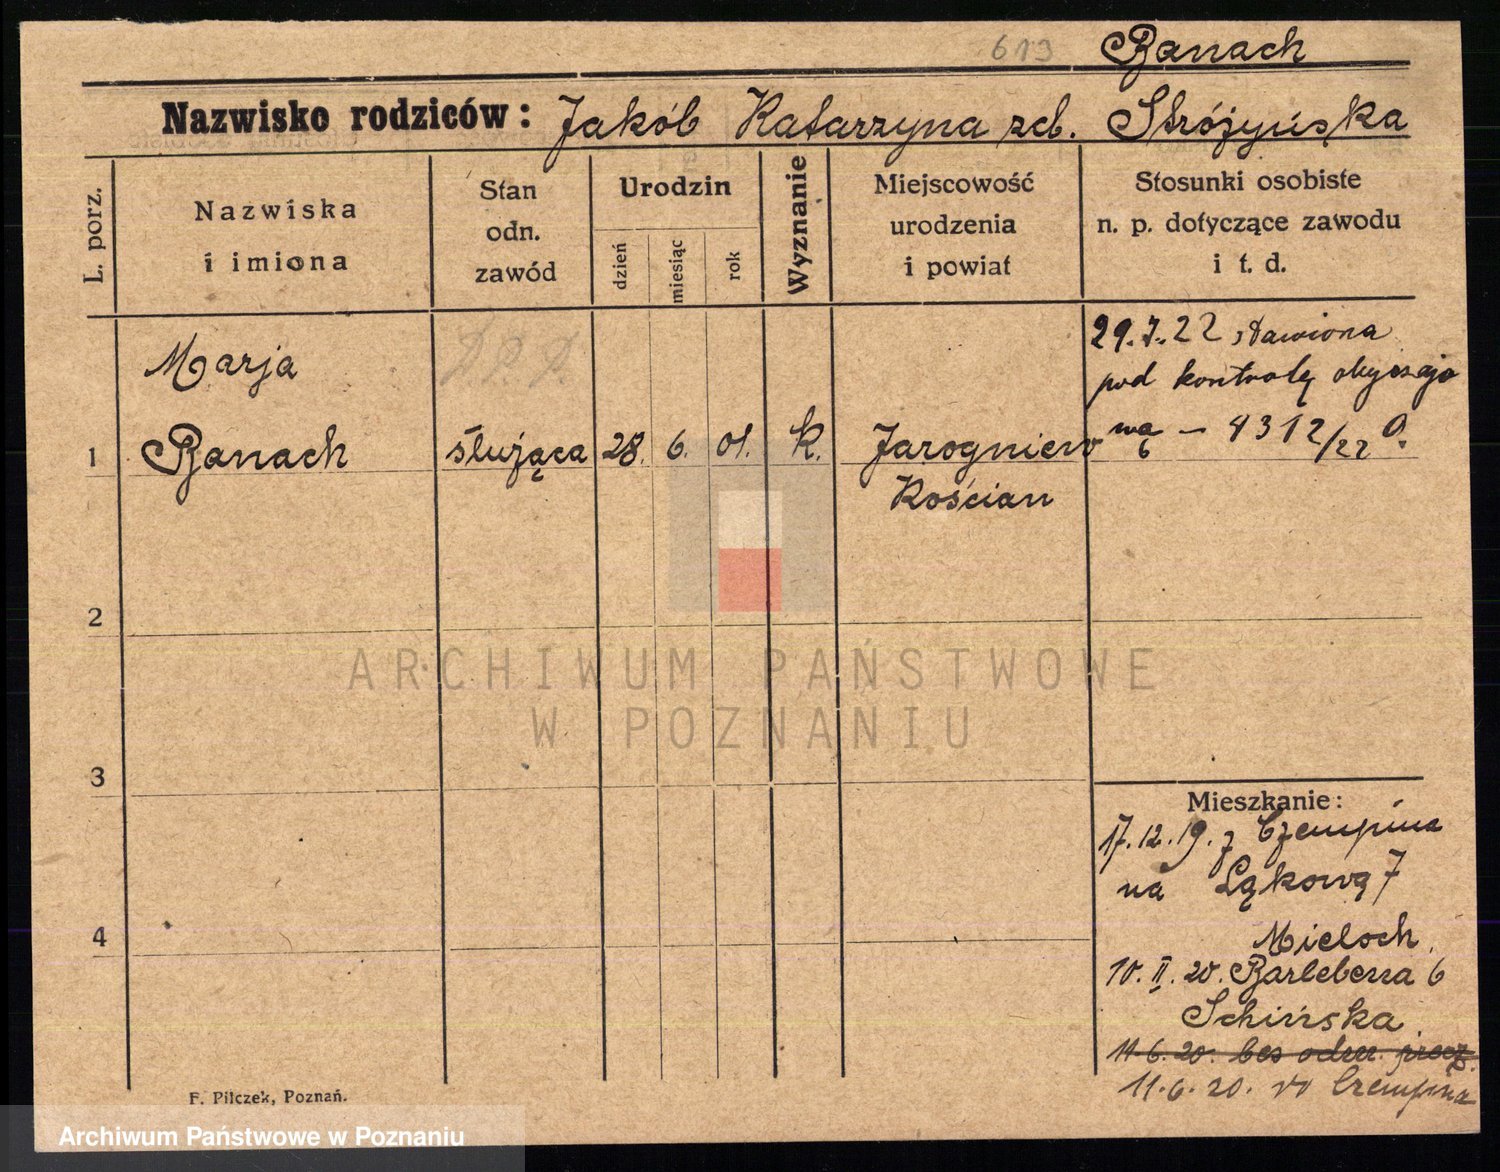 613 Banach
Nazwisko rodziców: Jakób Katarzyna Strójyńska
L. porz.
Nazwiska
i imiona
Stan
odn.
zawód
Urodzin
dzień
miesiąc
rok
Wyznanie
Miejscowość
urodzenia
i powiat
Stosunki osobiste
n. p. dotyczące zawodu
i t. d.
1
Marja
Banach
służąca
28. 6. 01. k.
Jarogniew
Kościan
29.7.22 stawiona
pod kontrolę obyczajo
wą - 4312/22
2
3
4
Mieszkanie:
17.12.19. z Czempina
na Łąkową 7
Mieloch.
10. II. 20. Barlebena 6
Schińska.
11.6.20.
11.6.20. Czempina
F. Pilczek, Poznań.
ARCHIWUM PAŃSTWOWE
W POZNANIU
Archiwum Państwowe w Poznaniu